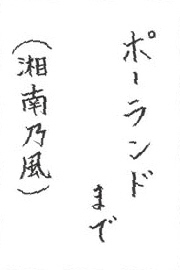 ポーランド
まで
（湘南乃風）